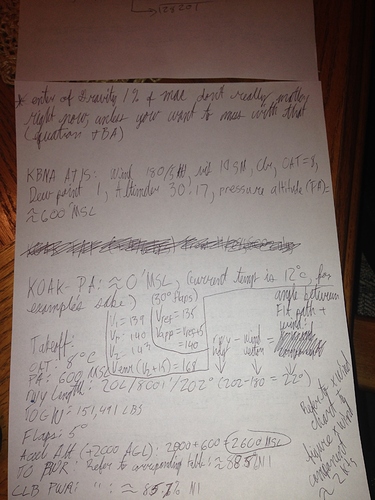 128201
* Center of Gravity % of mac don't really matter
right now, unless you want to mess with that
(equation TBA)
KBNA ATIS: Wind 180/5kt, vis 10SM, Clr, OAT=8,
Dew point 1, Altimeter 30.17, pressure altitude (PA)=
≈600' MSL
KOAK- PA: ≈ 0' MSL, (current temp is 12°C, for
example's sake)
(30° Flaps)
V1= 139
Vr= 140
V2= 143
Vref= 135
Vapp= Vref+5
=140
angle between
Flt path +
wind
Takeoff:
OAT: 8°C
PA: 600 MSL
rwy - wind =
hdg vector
RWY length: 20L/8001'/202° (202-180 = 22°)
TOGW: 151,491 LBS
Flaps: 5°
Accel Alt (+2000 AGL): 2000+600 = 2600 MSL
TO PWR: Refer to corresponding table: ≈ 88.5% N1
CLB PWR: " : ≈ 85.7% N1
Refer to xwind
chart to
figure xwind
component
≈ 2 kts